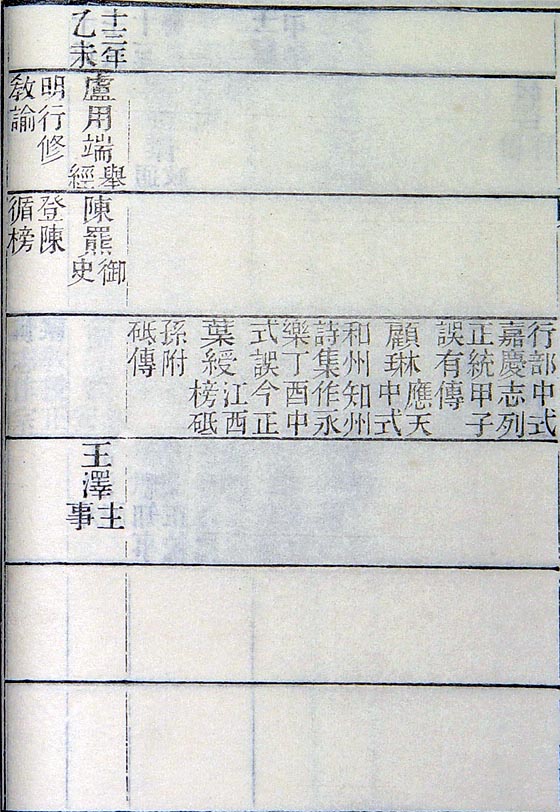 行部中式
嘉慶志列
正統甲子
誤有傳
顧琳應天
中式
和州知州
詩集作永
樂丁酉中
式誤今正
葉綬江西
榜砥
孫附
砥傳
十三年
乙未
盧用端舉
經
明行修
教諭
陳羆御
史
登陳
循榜
王澤主
事